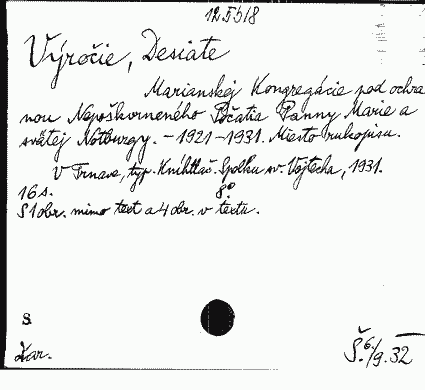 Výročie, Desiate
Marianskej Kongregácie pod ochra
nou Nepoškvrneného Počatia Panny Marie a
svätej Notburgy. - 1921-1931. Miesto rukopisu.
V Trnave, typ. Kníhtlač. Spolku sv. Vojtecha, 1931.
16 s. 8°
S 1 obr. mimo text a 4 obr. v textu.
S
Žar. Š.6./9.32